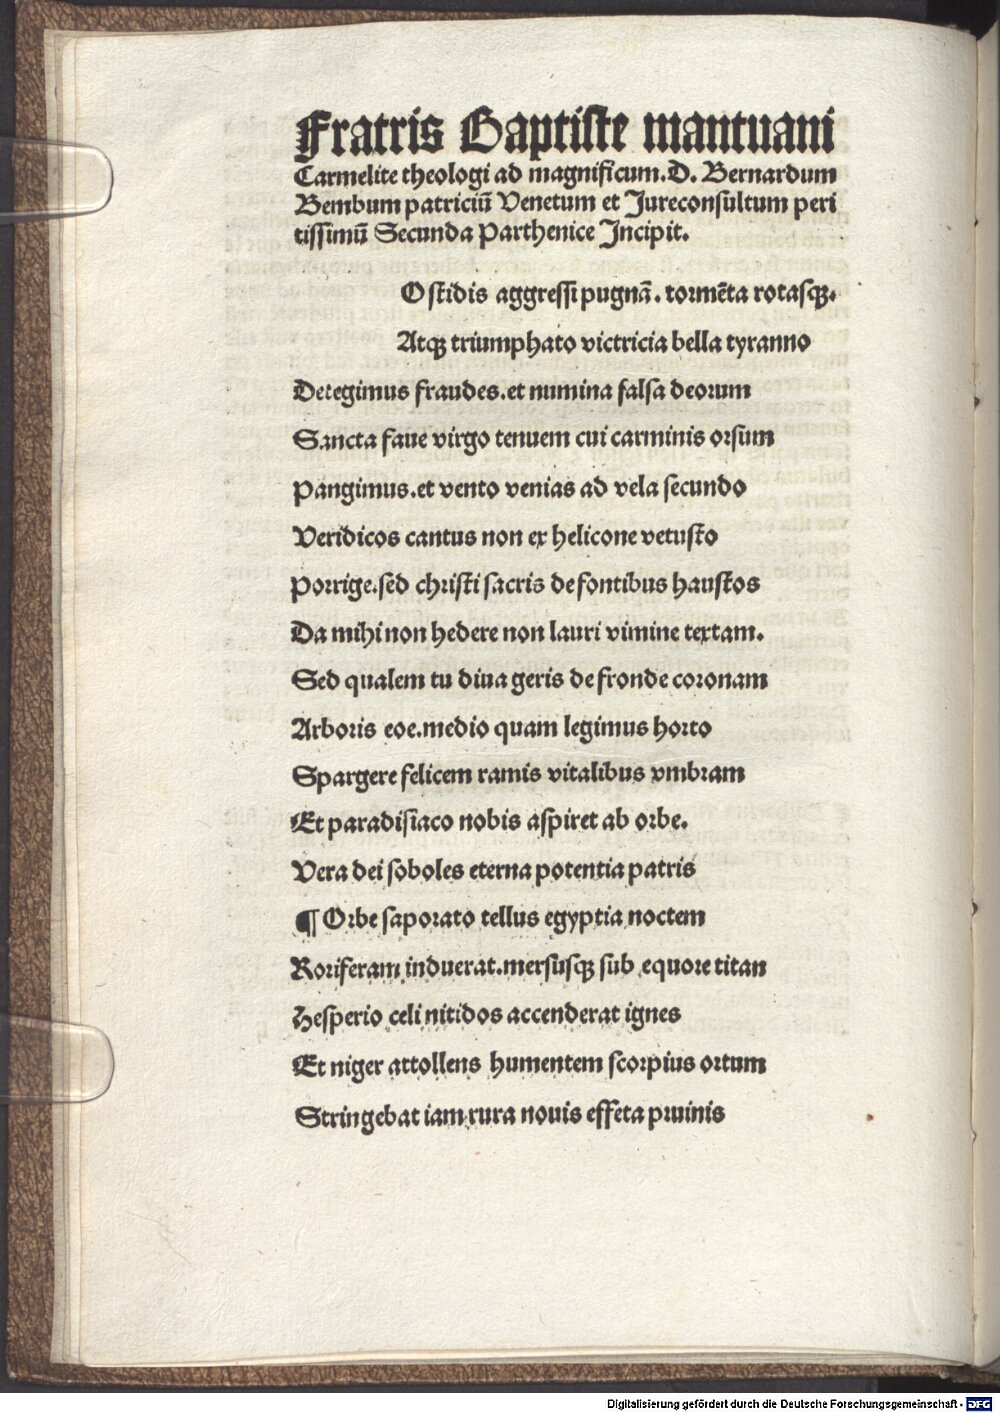 Fratris Baptiste mantuani
Carmelite theologi ad magnificum.D. Bernardum
Bembum patriciū Venetum et Jureconsultum peri
tissimū Secunda Parthenice Incipit.
Ostidis aggressi pugnā. tormēta rotasqꝫ.
Atqꝫ triumphato victricia bella tyranno
Deregimus fraudes.et numina falsa deorum
Sancta faue virgo tenuem cui carminis orsum
Pangimus.et vento venias ad vela secundo
Veridicos cantus non ex helicone vetusto
Porrige.sed christi sacris de fontibus haustos
Da mihi non hedere non lauri vimine textam.
Sed qualem tu diua geris de fronde coronam
Arboris eoe.medio quam legimus horto
Spargere felicem ramis vitalibus vmbram
Et paradisiaco nobis aspiret ab orbe.
Vera dei soboles eterna potentia patris
¶ Orbe saporato tellus egyptia noctem
Roriferam induerat.mersusqꝫ sub equore titan
Hesperio celi nitidos accenderat ignes
Et niger attollens humentem scorpius ortum
Stringebat iam rura nouis effeta pruinis
Digitalisierung gefördert durch die Deutsche Forschungsgemeinschaft - DFG